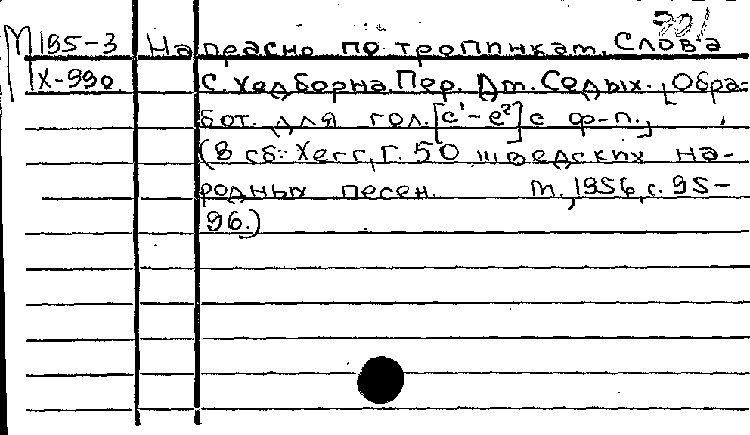 M 195-3 Напрасно по тропинкам. Слова
X-990 С. Хедборна. Пер. Дм. Седых. [Обра-
бот. для гол. [c¹-e²] с ф-п.]
(В сб: Хесс, Г. 50 шведских на-
родных песен. М., 1956, с. 95-
96.)